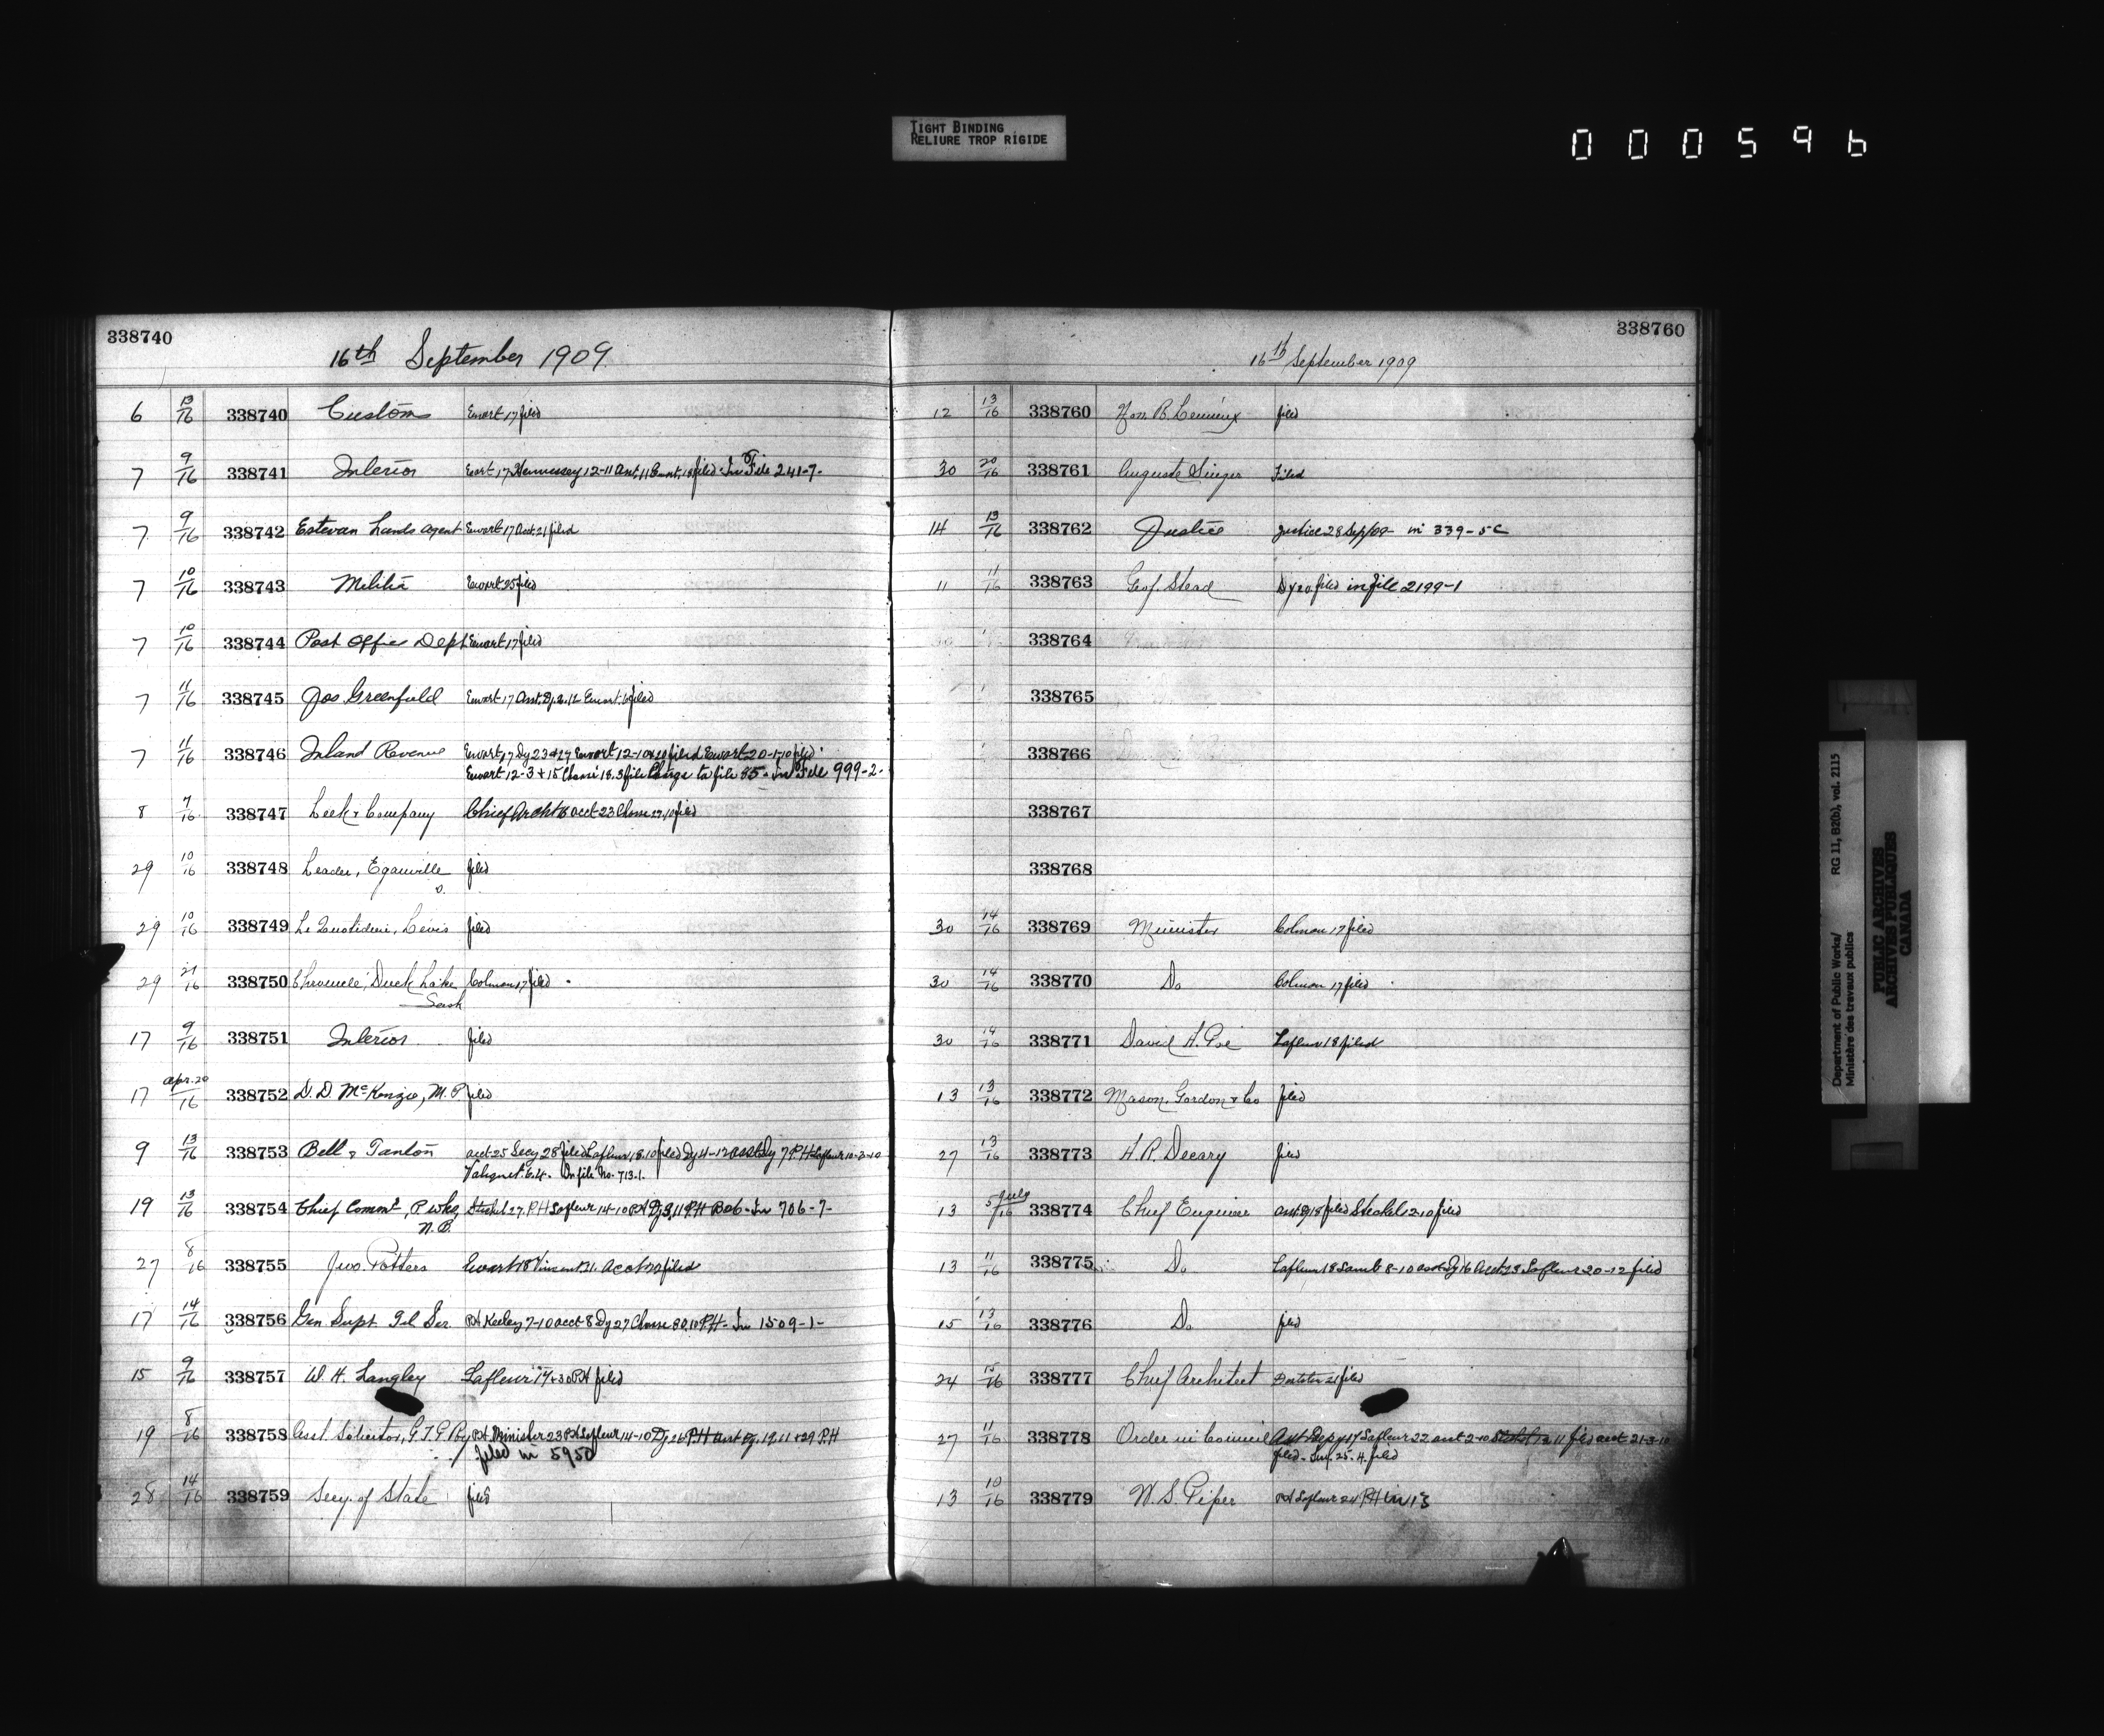 TIGHT BINDING
RELIURE TROP RIGIDE
000596
338740
16th September 1909
6 13/16 338740 Customs Ewart 17 filed
7 9/16 338741 Interior Ewart 17 Hennessey 12-11 filed In File 241-7-
7 9/16 338742 Estevan Lands Agent Ewart 17 Acct. 21 filed
7 10/16 338743 Militia Ewart 25 filed
7 10/16 338744 Post Office Dept Ewart 17 filed
7 11/16 338745 Jos Greenfield Ewart 17 Asst. Dy. 2.12 Ewart. 6 filed
7 11/16 338746 Inland Revenue Ewart 17 Dy 23 & 27 Ewart 12-10 filed Ewart 20-1-10 filed
Ewart 12-3 + 15 Chassé 18.3 file Charge to file 55 - In File 999-2-
8 7/16 338747 Leek & Company Chief Archt 16 acct 23 Chasse 27.10 filed
29 10/16 338748 Leader, Eganville filed
O.
29 10/16 338749 Le Quotidien, Levis filed
29 27/16 338750 Chronicle, Duck Lake Colman 17 filed
Sask
17 9/16 338751 Interior filed
17 Apr. 20/16 338752 D. D. McKenzie, M. P. filed
9 13/16 338753 Bell & Tanton acct 25 Secy 28 filed Lafleur 18.10 filed Dy 4-12 asst Dy 7 P.H. Lafleur 10-3-10
Valiquet 6.4. On file No. 713-1.
19 13/16 338754 Chief Commr, P wks, Steckel 27. P.H Lafleur 14-10 P.H In 706-7-
N.B.
27 8/16 338755 Jno. Potters Ewart 18 Vincent 21. Acct 22 filed
17 14/16 338756 Gen Supt Tel Ser. P.H Keeley 7-10 acct 8 Dy 27 Chasse 30.10 P.H - In 1509-1-
15 9/16 338757 W. H. Langley Lafleur 17 + 30 P.H filed
19 8/16 338758 Asst. Solicitor, G.T.P Ry P.H. Minister 23 P.H Lafleur 14-10 Dy 26 P.H asst Dy. 19.11 + 29 P.H
filed in 5950
28 14/16 338759 Secy. of State filed
338760
16th September 1909
12 13/16 338760 Hon. R. Lemieux filed
30 20/16 338761 Auguste Singer Filed
14 13/16 338762 Justice Justice 28 Sep/09 - in 339-5C
11 11/16 338763 Geof. Stead Dy 20 filed in file 2199-1
338764
338765
338766
338767
338768
30 14/16 338769 Minister Colman 17 filed
30 14/16 338770 Do Colman 17 filed
30 14/16 338771 David H. Poe Lafleur 18 filed
13 13/16 338772 Mason, Gordon & Co filed
27 13/16 338773 A. R. Decary filed
13 5 July/16 338774 Chief Engineer asst Dy 18 filed Steckel 12-10 filed
13 11/16 338775 Do Lafleur 18 Lamb 8-10 asst Dy 16 Acct 23 Lafleur 20-12 filed
15 13/16 338776 Do filed
24 15/16 338777 Chief Architect 21 filed
27 11/16 338778 Order in Council Asst Depy 17 Lafleur 22 2-10 Steckel 13 11 filed 21-3-10
filed - 25.4. filed
13 10/16 338779 W. S. Piper P.H Lafleur 24 P.H in 13
Department of Public Works/
Ministère des travaux publics
RG 11, B2(b), vol. 2115
PUBLIC ARCHIVES
ARCHIVES PUBLIQUES
CANADA